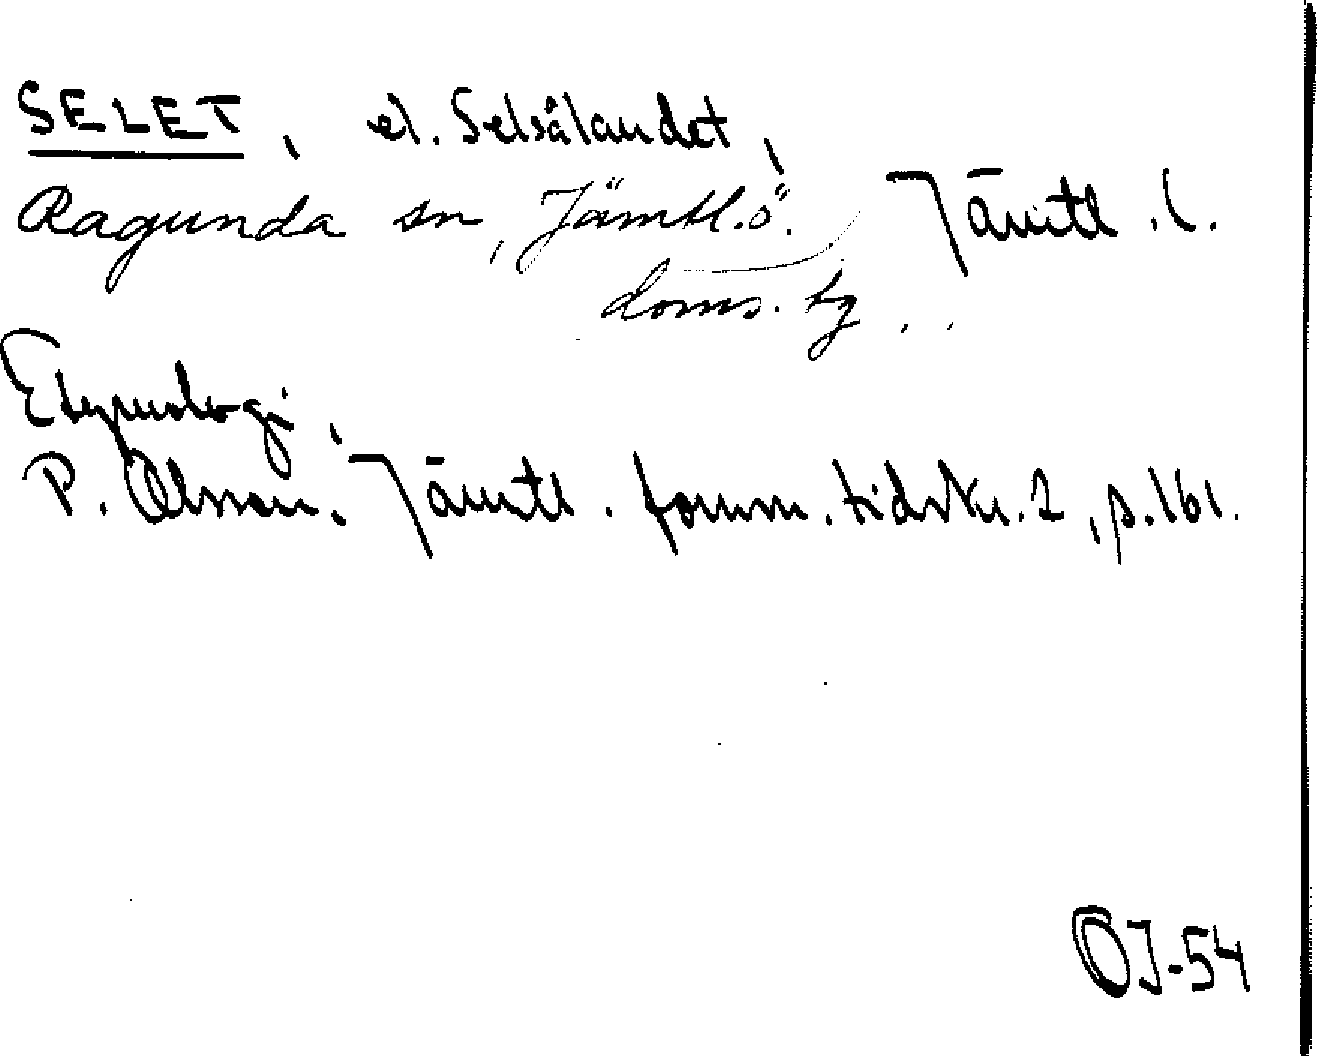 SELET, el. Selsålandet,
Ragunda sn, Jämtl.ö. Jämtl.l.
doms. hg..
Etymologi,
P. Olsson. Jämtl. fornm. tidskr. 2, p. 161.
OJ-54